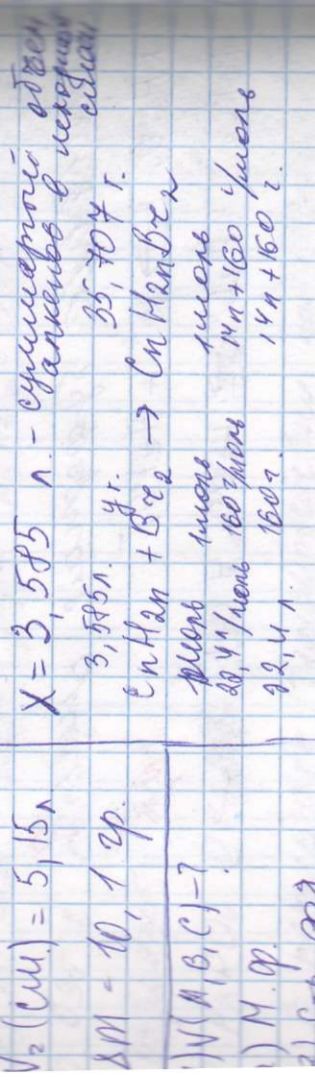 V₂ (см.) = 5,15 л
Δm - 10,1 гр.
1) V(A,B,C) - ?
2) М.ф.
X = 3,585 л. - суммарный объем
алкенов в исходной
смеси
3,585 л. y г. 35,707 г.
CnH2n + Br2 → CnH2nBr2
1 моль 1 моль 1 моль
22,4 л/моль 160 г/моль 14n+160 г/моль
22,4 л. 160 г. 14n+160 г.